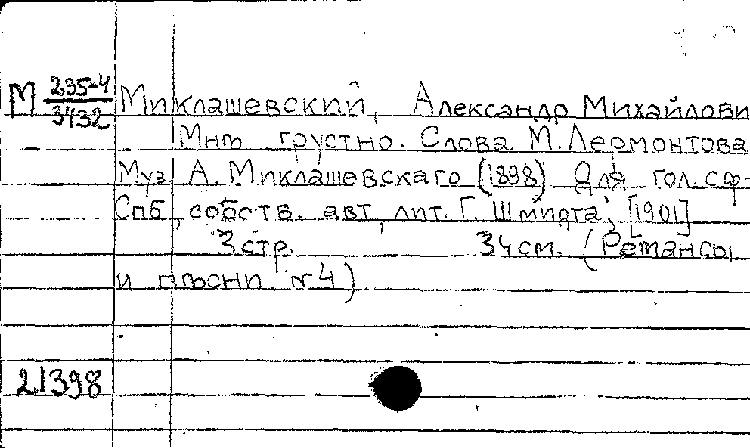 М 235-4/3432 Миклашевский, Александр Михайлови
Мнѣ грустно. Слова М. Лермонтова
Муз А. Миклашевскаго (1898) Для гол. с ф-
Спб, собств. авт, лит. Г. Шмидта, [1901]
3 стр. 34 см. (Романсы
и пѣсни №4)
21398